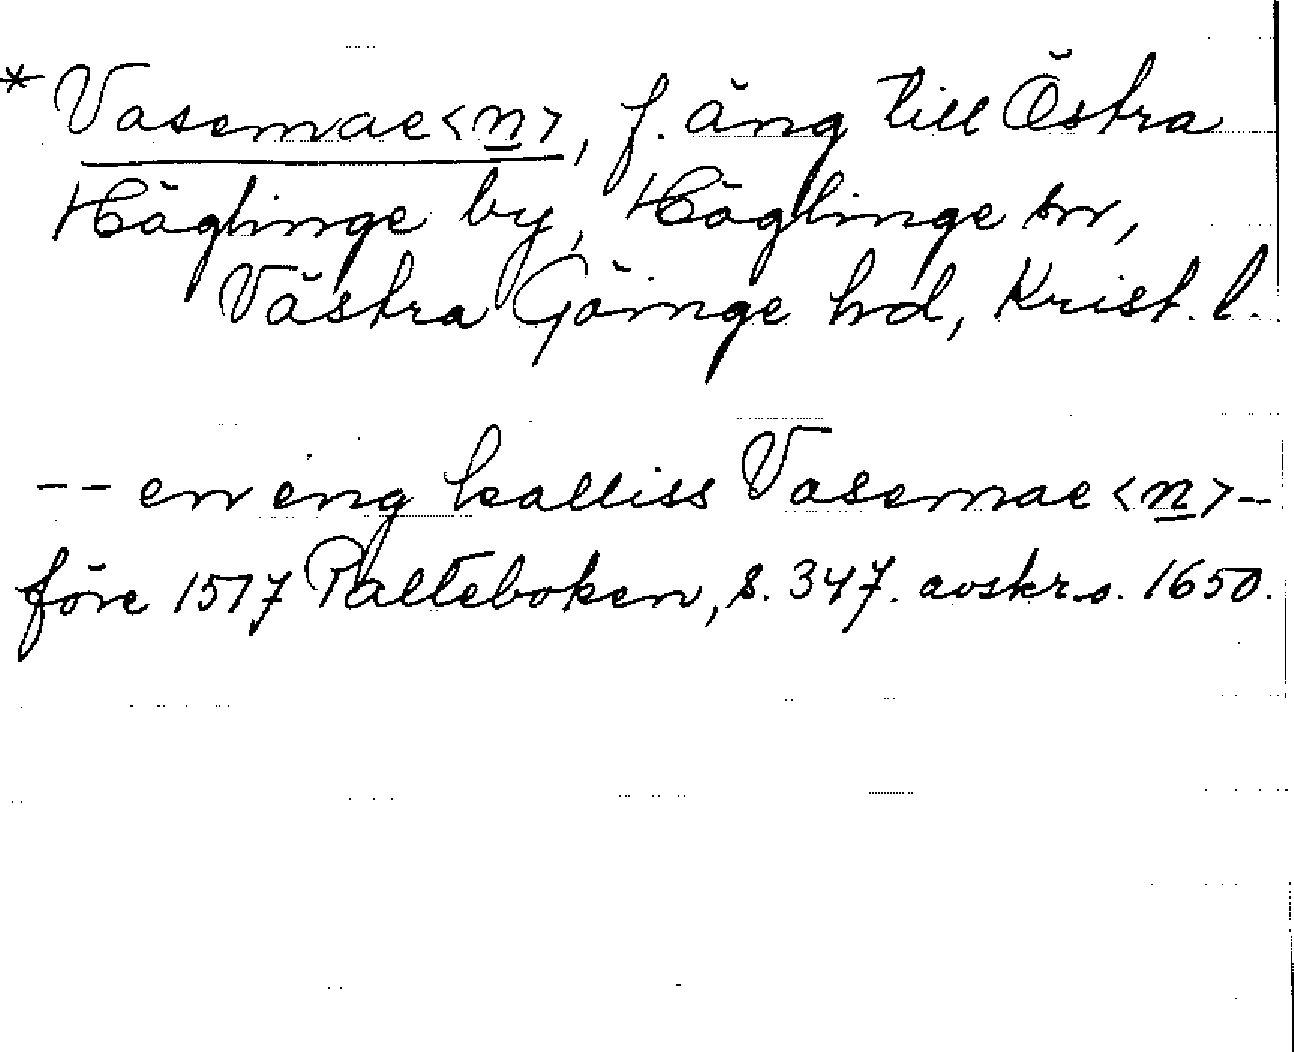 * Vasemae<n>, f. äng till Östra
Häglinge by, Häglinge sn,
Västra Göinge hd, Krist. l.
-- en eng kalliss Vasemae<n> –
före 1517 Palteboken, s. 347. avskr. o. 1650.